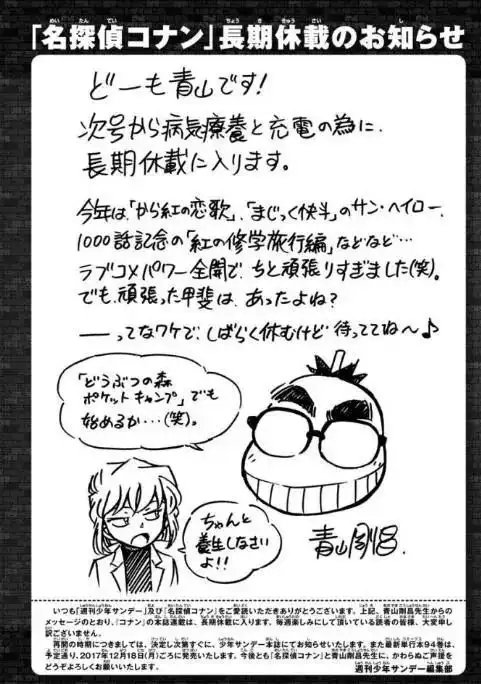 「名探偵コナン」長期休載のお知らせ
どーも青山です!
次号から病気療養と充電の為に、
長期休載に入ります。
今年は、「から紅の恋歌」、「まじっく快斗」のサン・ヘイロー、
1000話記念の「紅の修学旅行編」などなど…
ラブコメパワー全開で、ちと頑張りすぎました(笑)。
でも、頑張った甲斐は、あったよね?
――ってなワケで、しばらく休むけど待っててね〜♪
「どうぶつの森
ポケットキャンプ」でも
始めるか…(笑)。
ちゃんと
養生しなさい
よ!!
青山剛昌.
いつも「週刊少年サンデー」及び『名探偵コナン』をご愛読いただきありがとうございます。上記、青山剛昌先生からの
メッセージのとおり、『コナン』の本誌連載は、長期休載に入ります。毎週楽しみにして頂いている読者の皆様、大変申し
訳ございません。
再開の時期につきましては、決定次第すぐに、少年サンデー本誌にてお知らせいたします。また最新単行本94巻は、
予定通り、2017年12月18日(月)ごろに発売いたします。今後とも『名探偵コナン』と青山剛昌先生に、かわらぬご声援を
どうぞよろしくお願いいたします。
週刊少年サンデー編集部